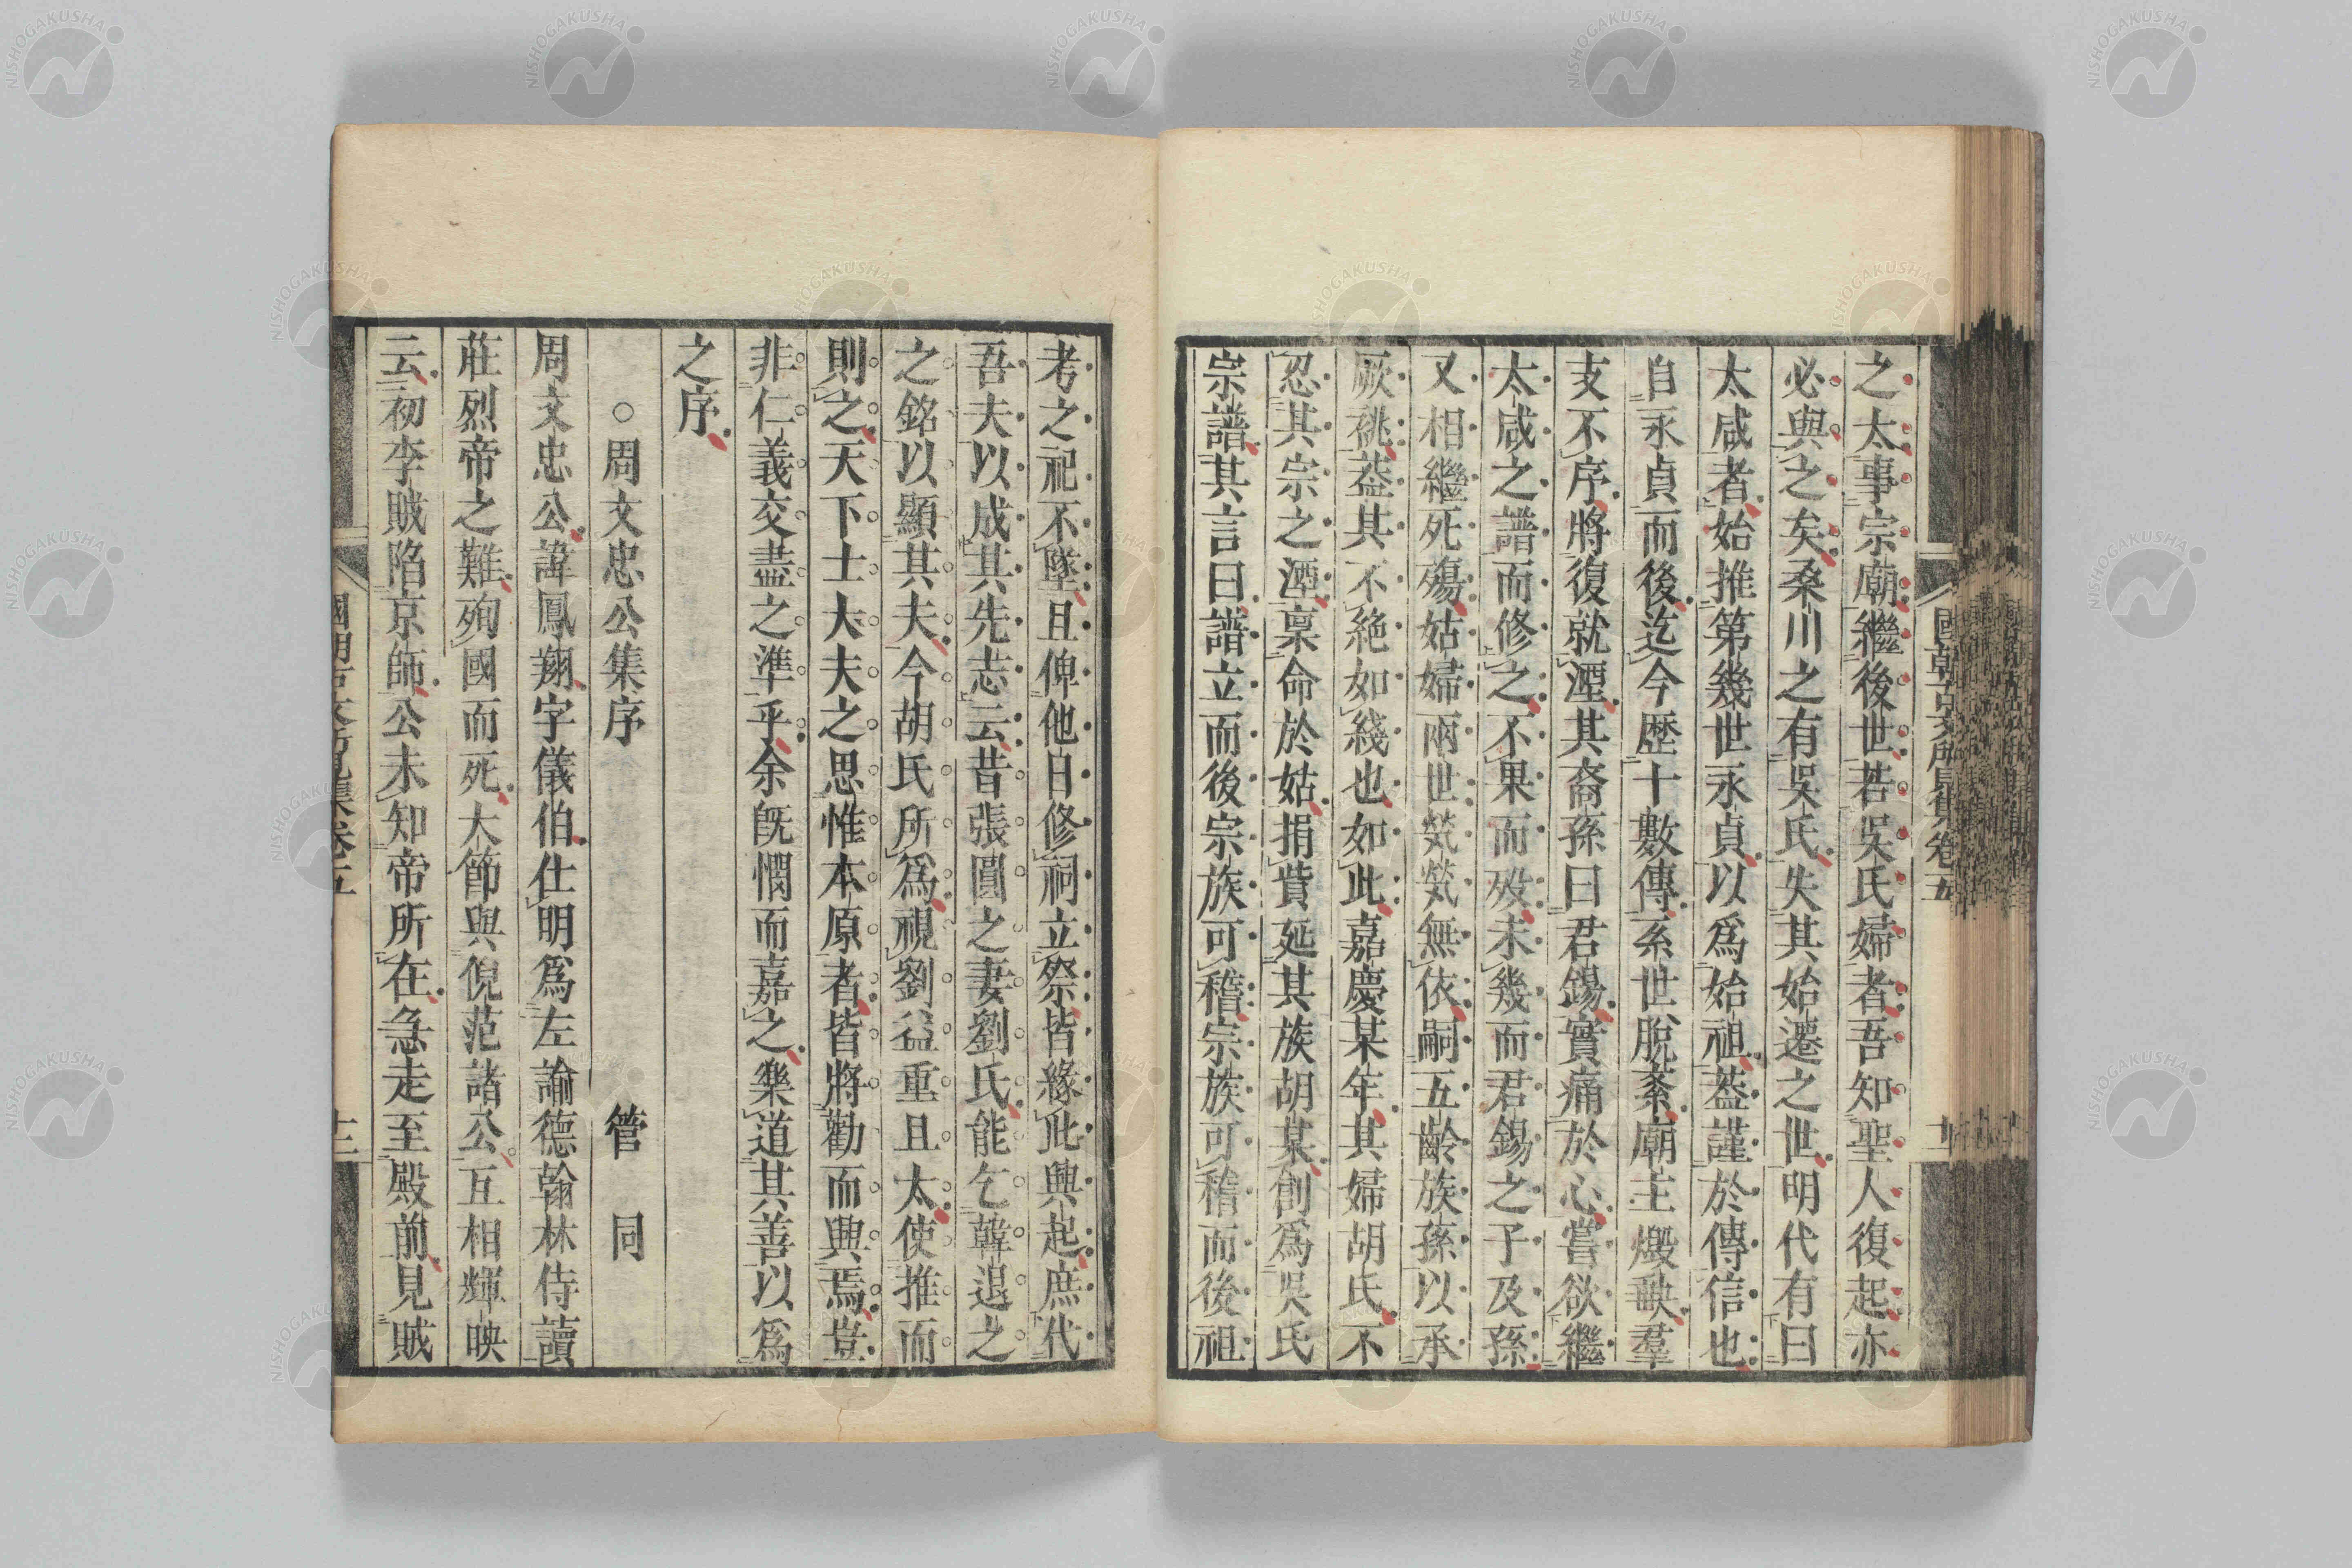 之太事宗廟繼後世若吳氏婦者吾知聖人復起亦
必與之矣桑川之有吳氏失其始遷之世明代有曰
太咸者始推第幾世永貞以爲始祖葢謹於傳信也
自永貞而後迄今歷十數傳系世脫紊廟主燬軼羣
支不序將復就湮其裔孫曰君錫實痛於心嘗欲繼
太咸之譜而修之不果而歿未幾而君錫之子及孫
又相繼死殤姑婦兩世煢煢無依嗣五齡族孫以承
厥祧葢其不絶如綫也如此嘉慶某年其婦胡氏不
忍其宗之湮稟命於姑捐貲延其族胡某創爲吳氏
宗譜其言曰譜立而後宗族可稽宗族可稽而後祖
國朝古文所見集卷五
考之祀不墜且俾他日修祠立祭皆緣此興起庶代
吾夫以成其先志云昔張圓之妻劉氏能乞韓退之
之銘以顯其夫今胡氏所爲視劉益重且太使推而
則之天下士大夫之思惟本原者皆將勸而興焉豈
非仁義交盡之準乎余旣憫而嘉之樂道其善以爲
之序
○周文忠公集序 管同
周文忠公諱鳳翔字儀伯仕明爲左諭德翰林侍讀
莊烈帝之難殉國而死大節與倪范諸公互相輝映
云初李賊陷京師公未知帝所在急走至殿前見賊
國朝古文所見集卷五
十二
NISHOGAKUSHA